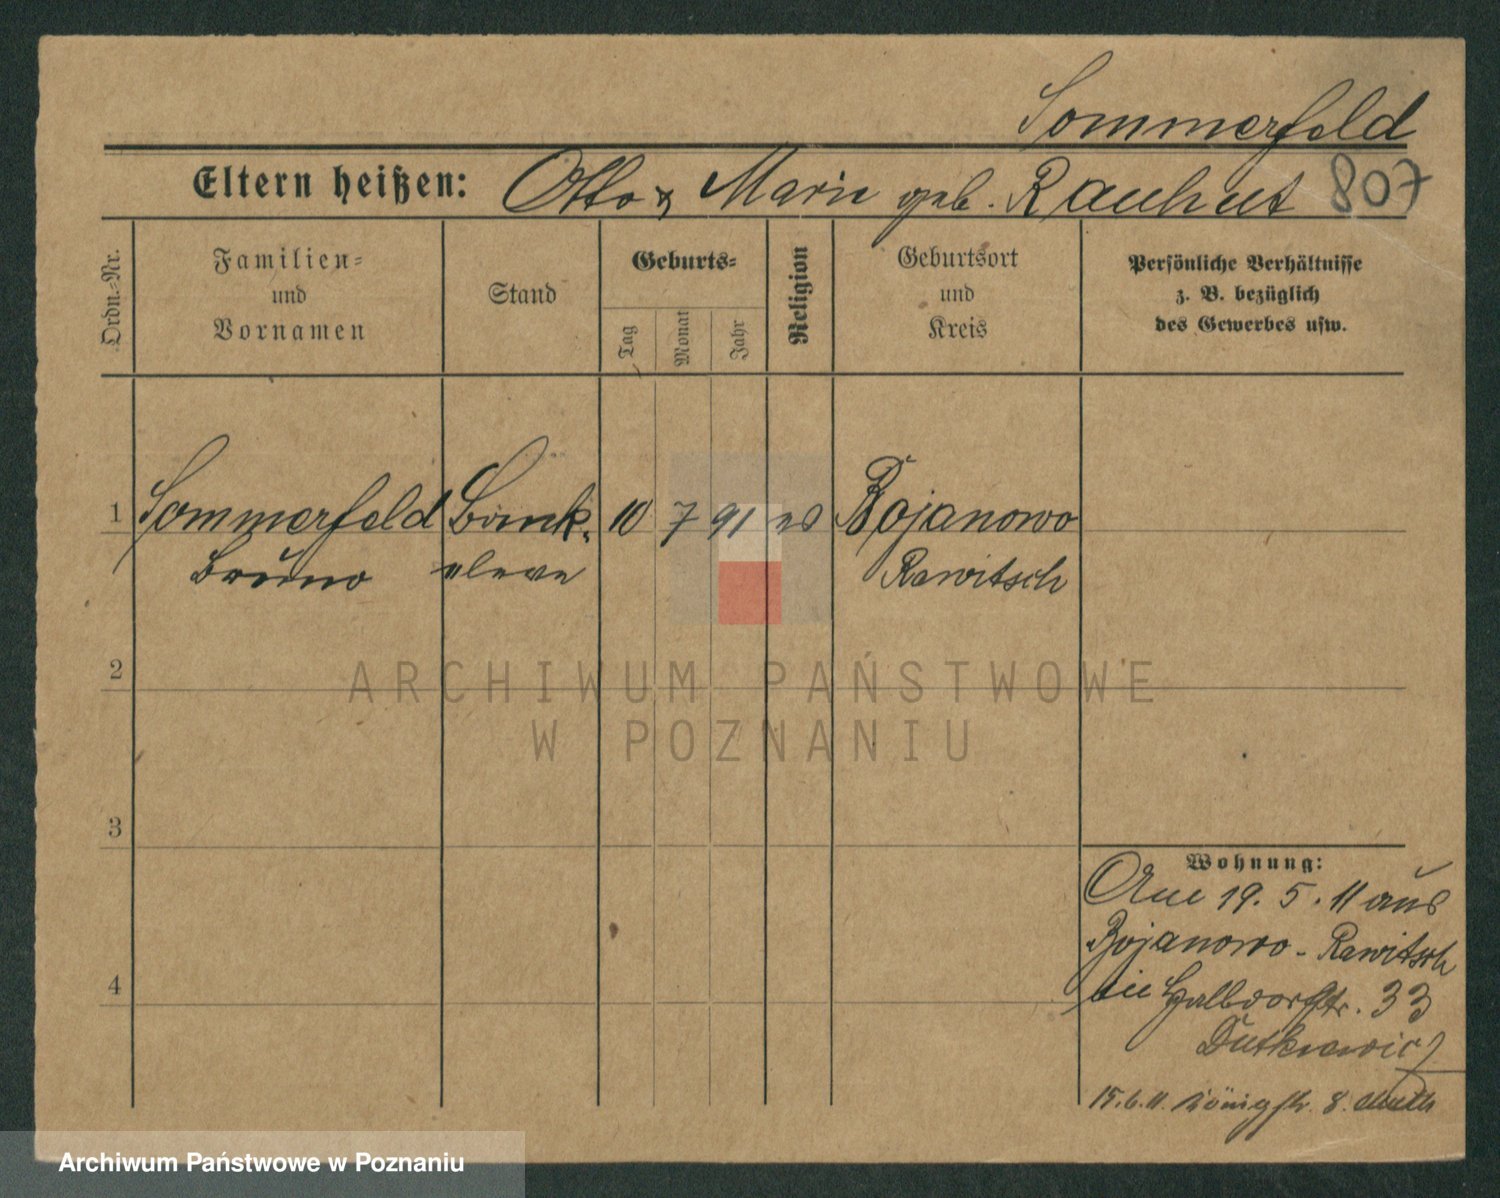 Sommerfeld
Eltern heißen: Otto & Marie geb. Rauhut 807
Ordn.-Nr.
Familien-
und
Vornamen
Stand
Geburts-
Tag
Monat
Jahr
Religion
Geburtsort
und
Kreis
Persönliche Verhältnisse
z. B. bezüglich
des Gewerbes usw.
1 Sommerfeld Bank- 10 7 91 Bojanowo
Bruno eleve Rawitsch
2
ARCHIWUM PAŃSTWOWE
W POZNANIU
3
Wohnung:
19. 5. 11 aus
Bojanowo - Rawitsch
4
Halbdorfstr. 33
15. 6. 11. Königstr. 8.
Archiwum Państwowe w Poznaniu